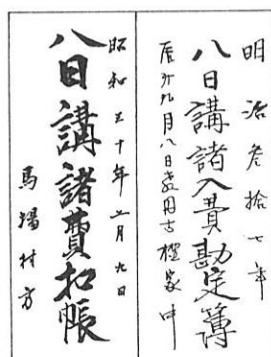 明治参拾七年
八日講諸入費勘定簿
辰旧九月八日
昭和五十年二月九日
八日講諸費扣帳
馬場村方